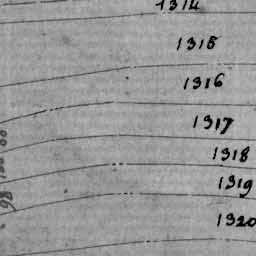 1314
1315
1316
1317
1318
1319
1320